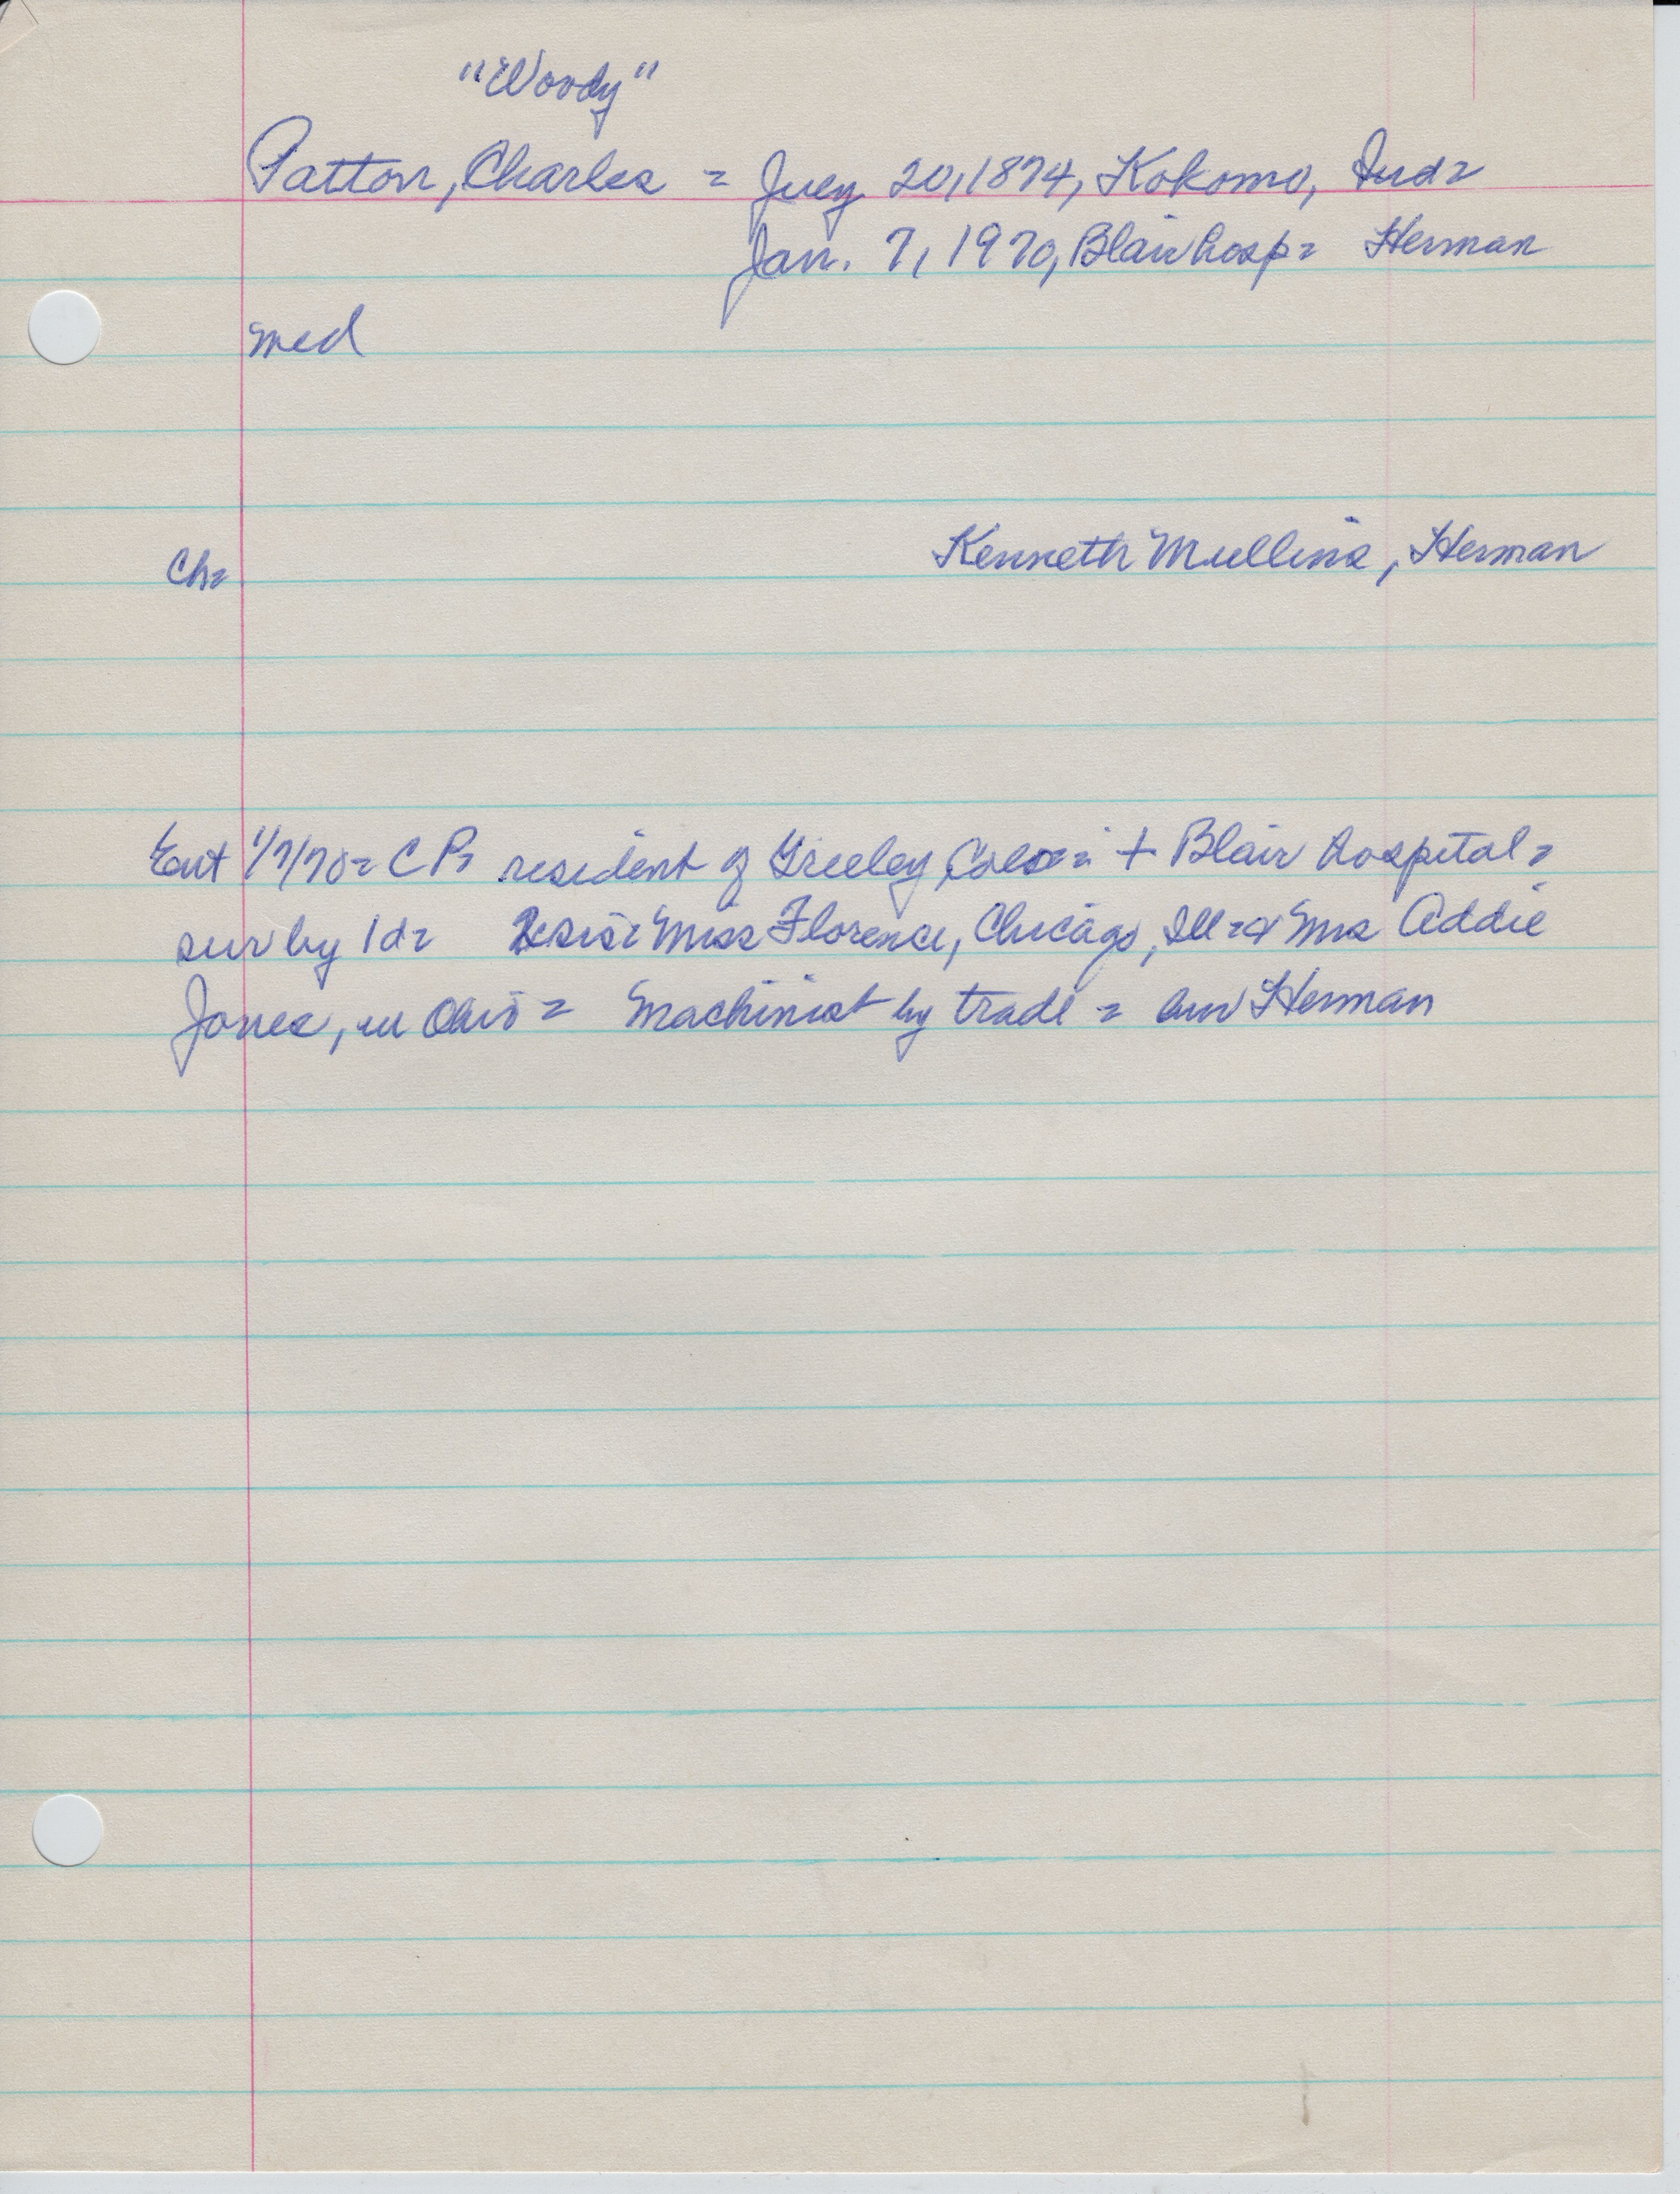 "Woody"
Patton, Charles = July 20, 1874, Kokomo, Ind=
Jan. 7, 1970, Blair hosp= Herman
med
Ch= Kenneth Mullins, Herman
Ent 1/7/70= CP= resident of Greeley, Colo= + Blair hospital=
sur by 1d= 2sis= Miss Florence, Chicago, Ill= & Mrs Addie
Jones, in Ohio = Machinist by trade = bur Herman